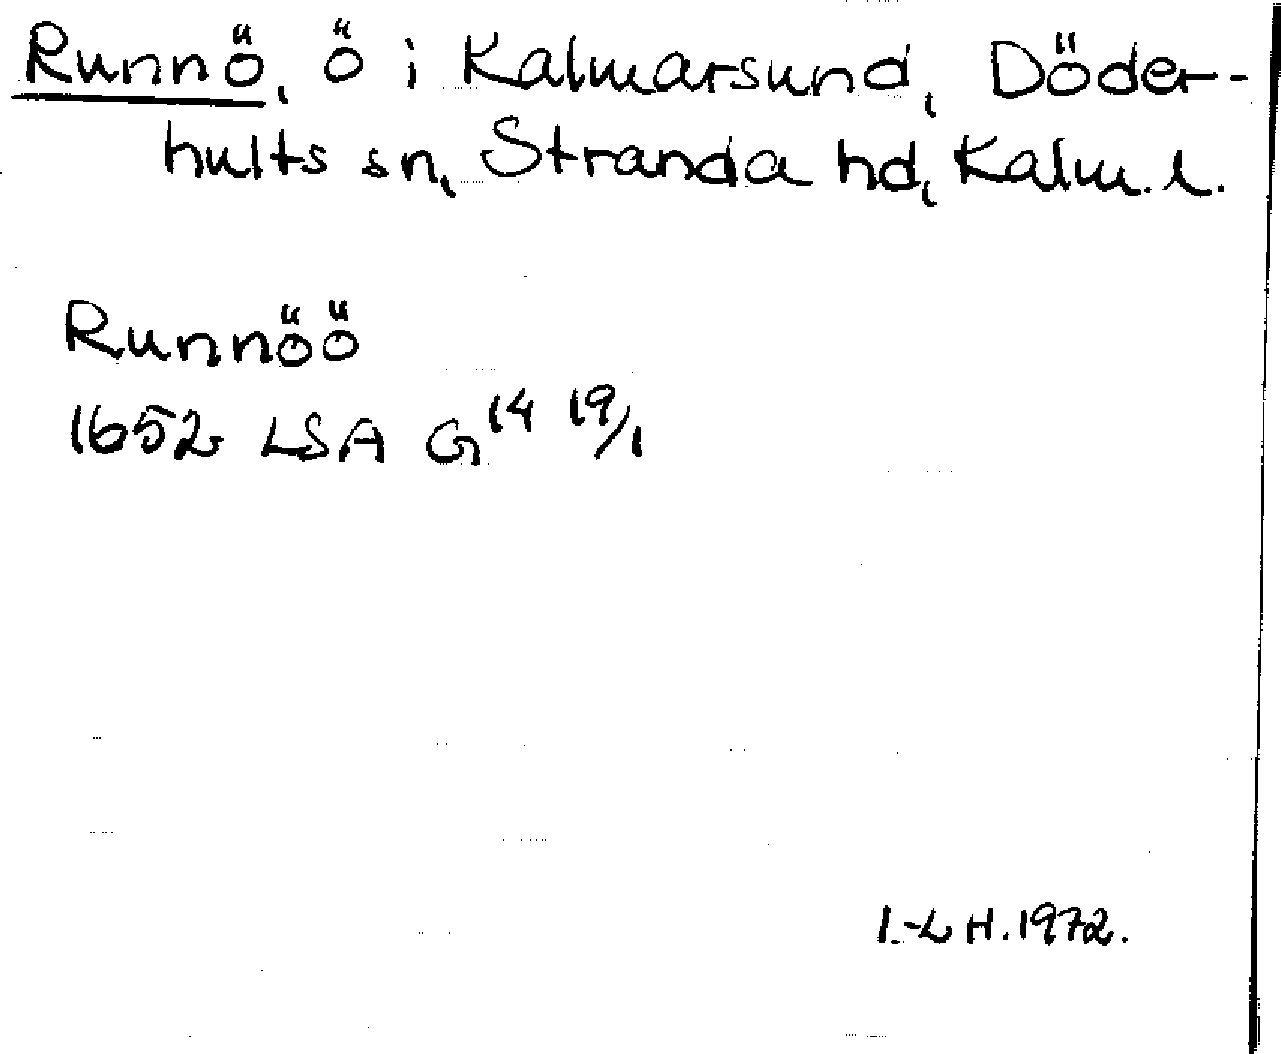 Runnö, ö i Kalmarsund, Döder-
hults sn, Stranda hd, Kalm. l.
Runnöö
1652 LSA G 14 19/1
I.-L H. 1972.